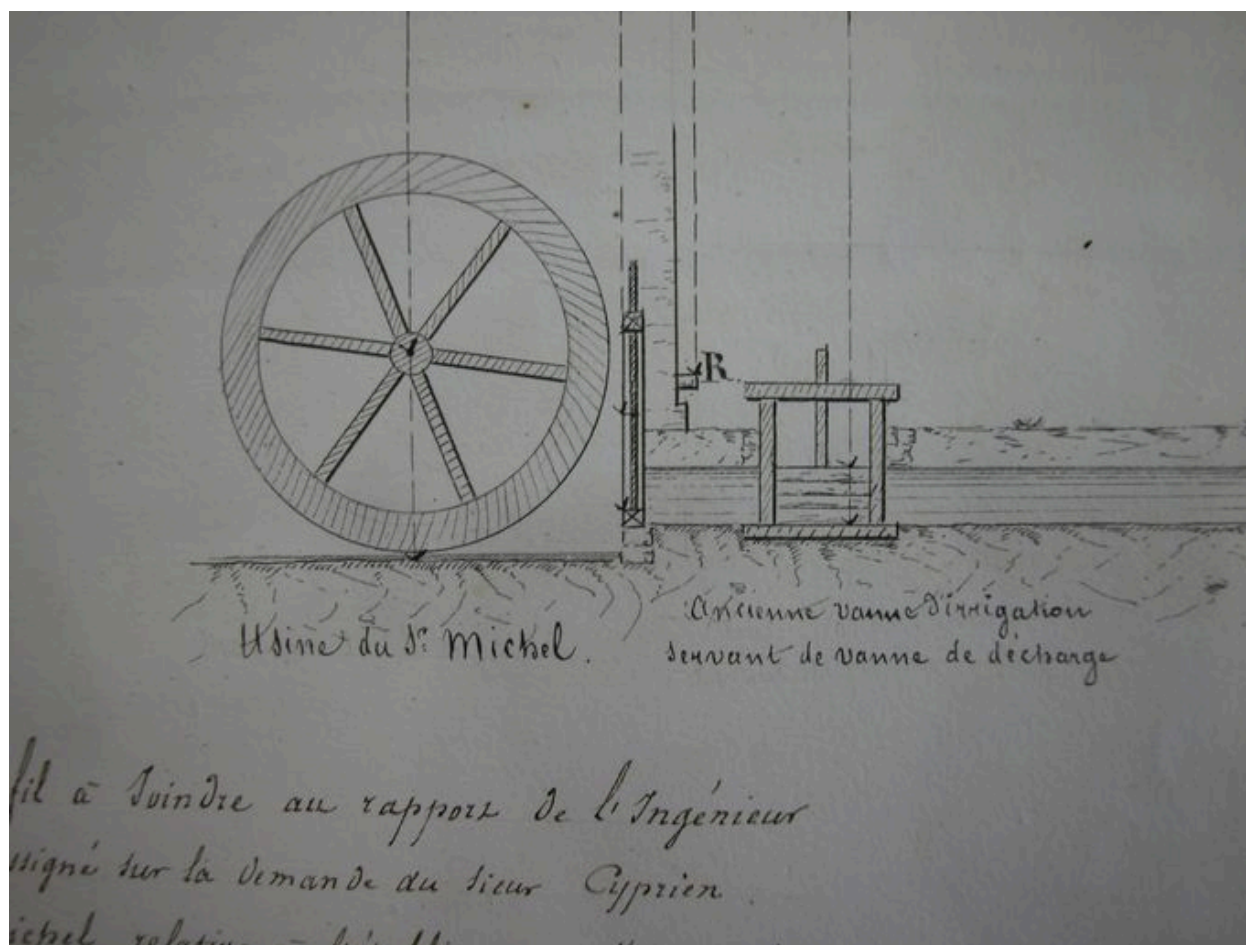 R
Usine du Sr. Michel.
Ancienne vanne d'irrigation
servant de vanne de décharge
fil à Joindre au rapport de l'Ingénieur
ssigné sur la demande du sieur Cyprien
ichel relative à